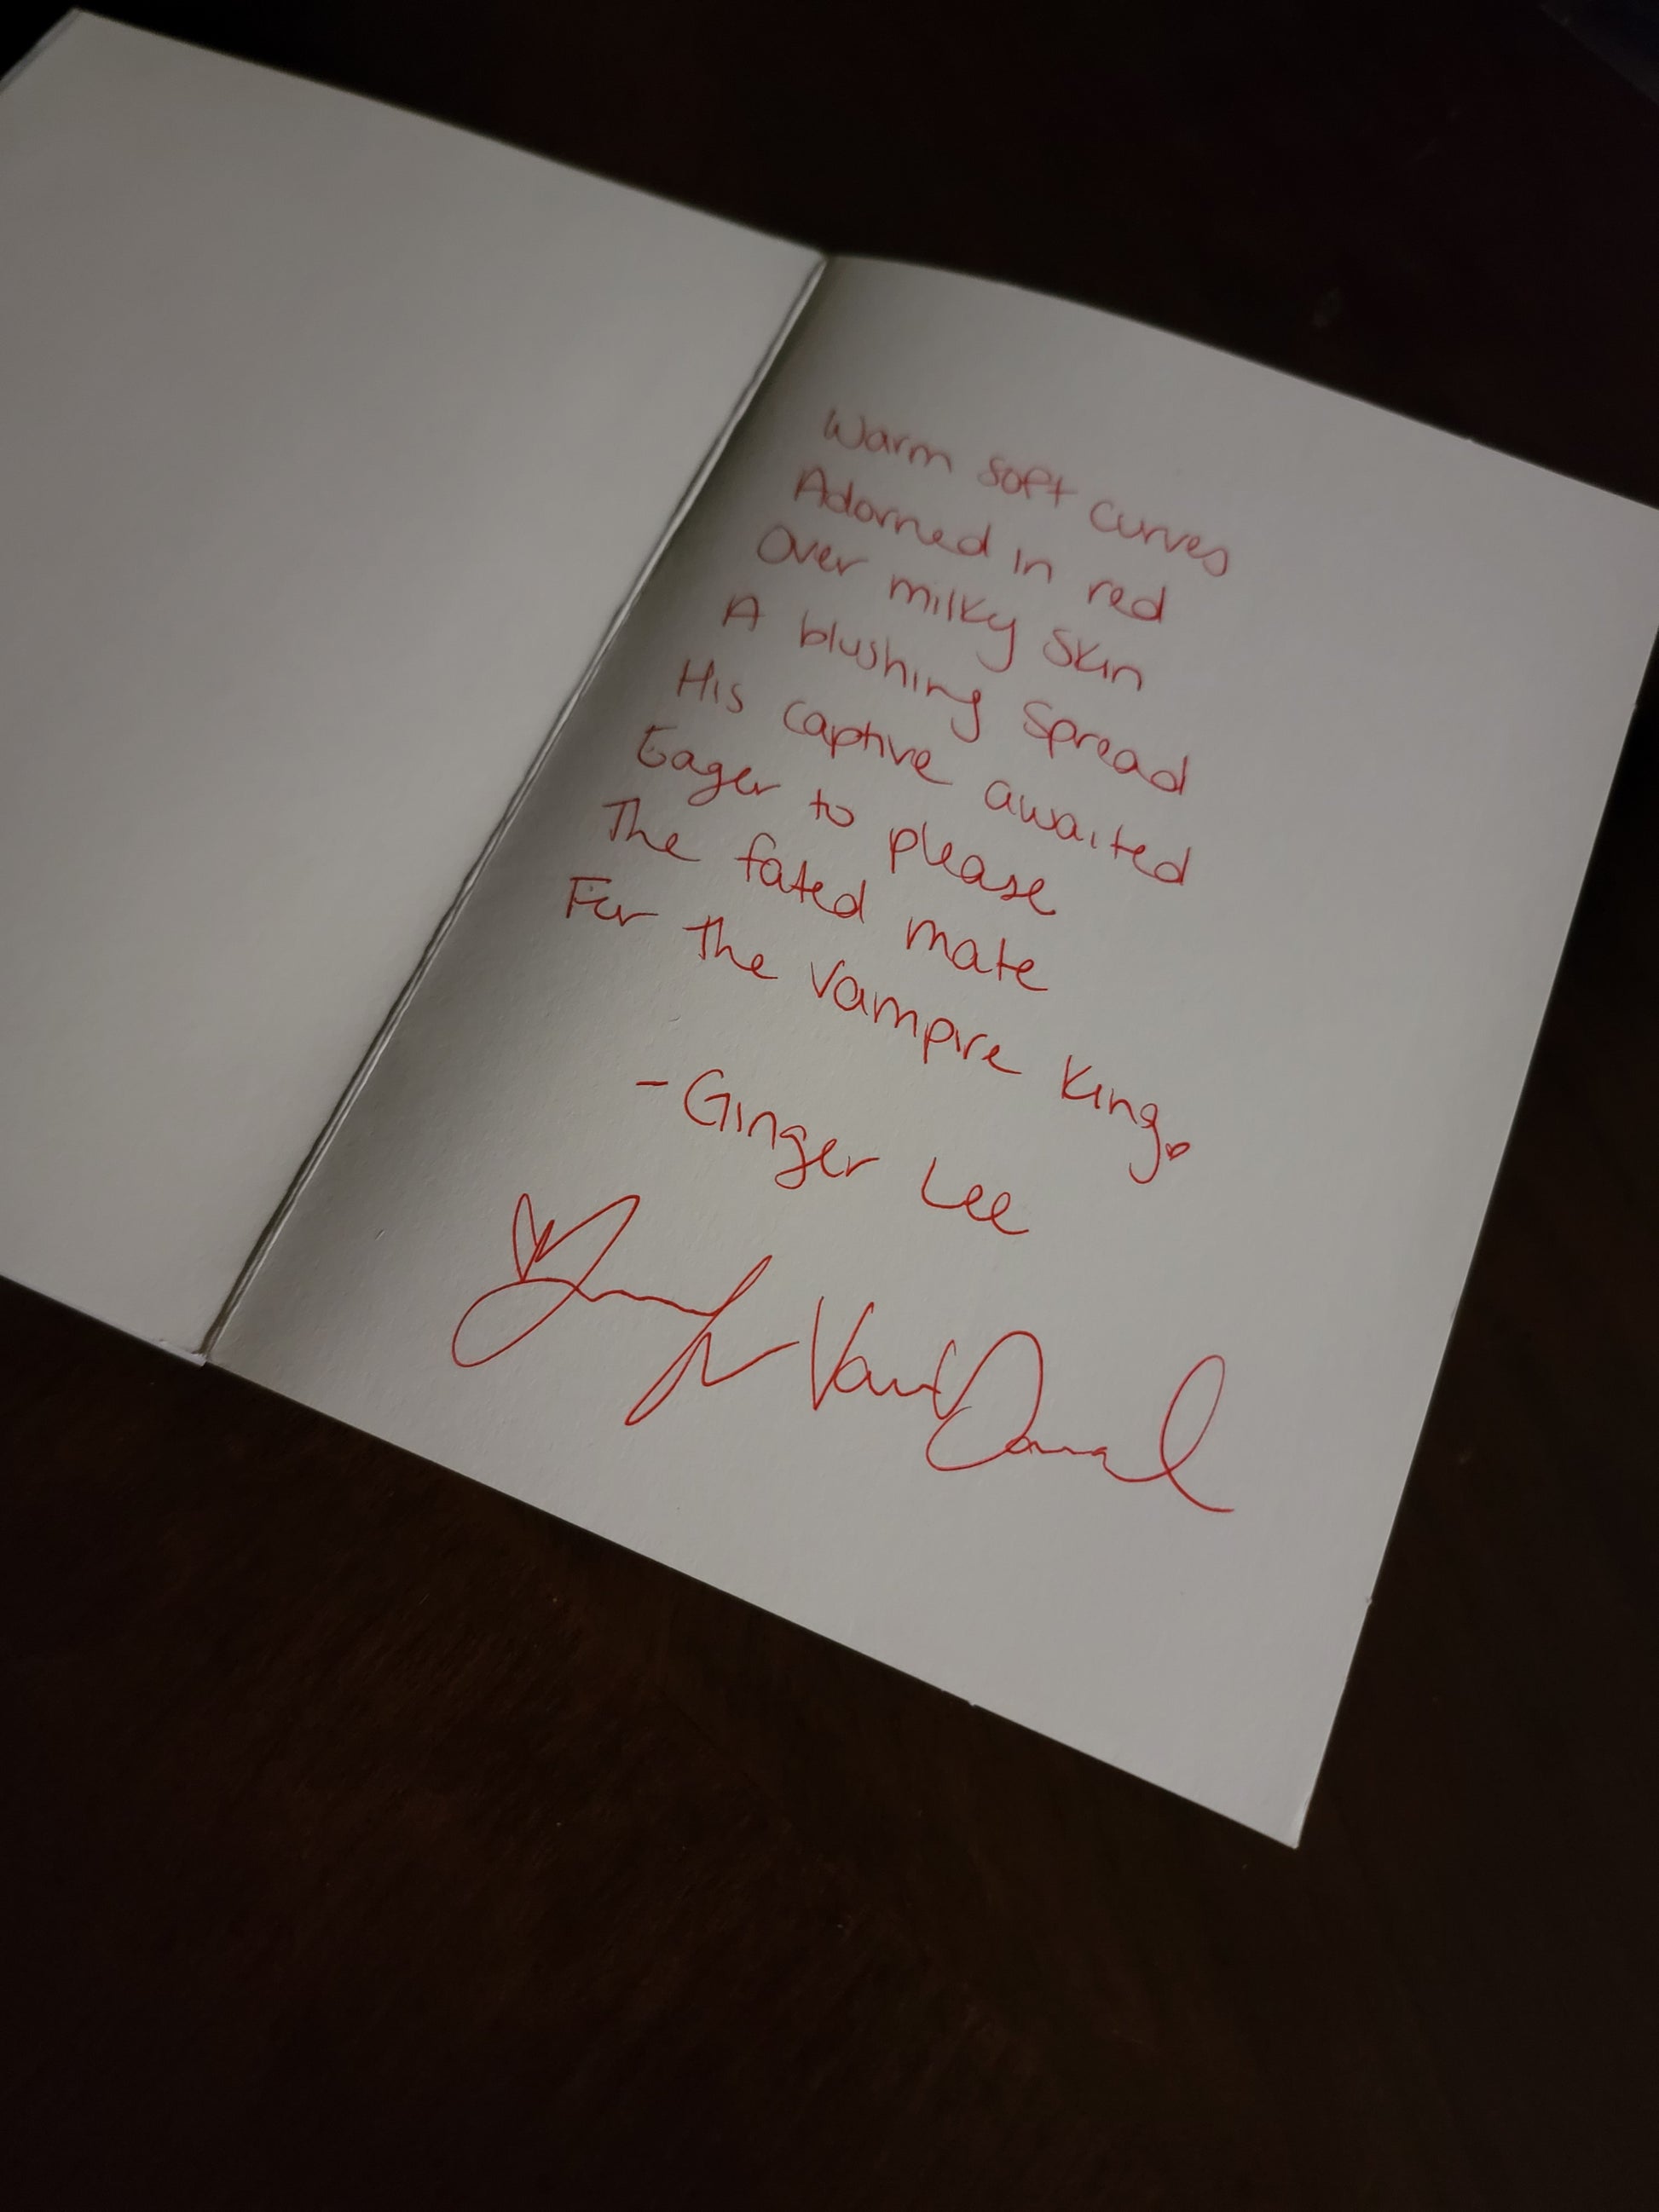 Warm soft curves
Adorned in red
Over milky skin
A blushing spread
His captive awaited
Eager to please
The fated mate
For the Vampire King
- Ginger Lee